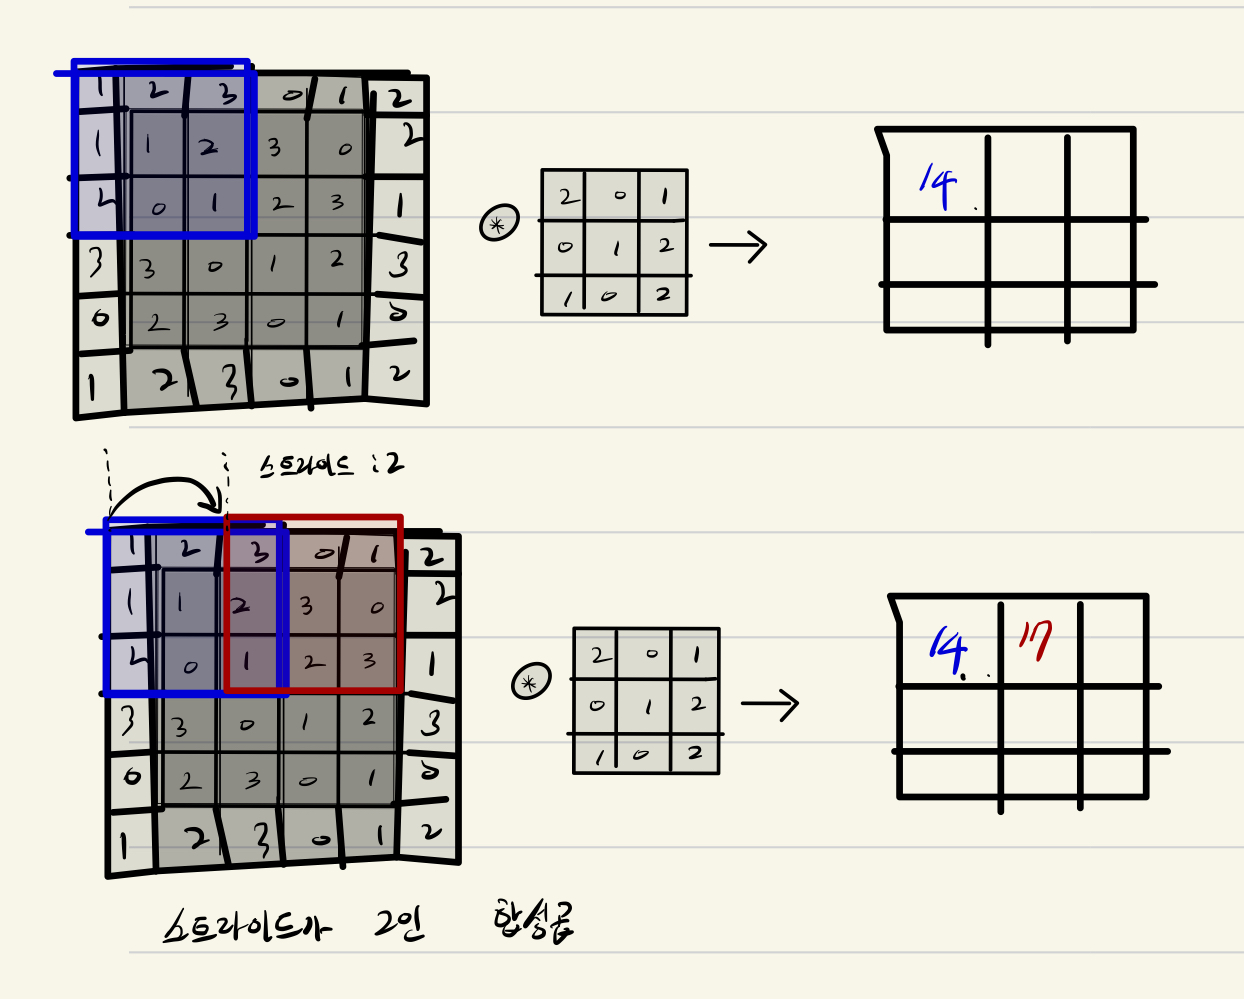 1 2 3 0 1 2
1 1 2 3 0 2
2 0 1 2 3 1
3 3 0 1 2 3
0 2 3 0 1 0
1 2 3 0 1 2
⊛
2 0 1
0 1 2
1 0 2
→
14
스트라이드 : 2
1 2 3 0 1 2
1 1 2 3 0 2
2 0 1 2 3 1
3 3 0 1 2 3
0 2 3 0 1 0
1 2 3 0 1 2
⊛
2 0 1
0 1 2
1 0 2
→
14 17
스트라이드가 2인 합성곱